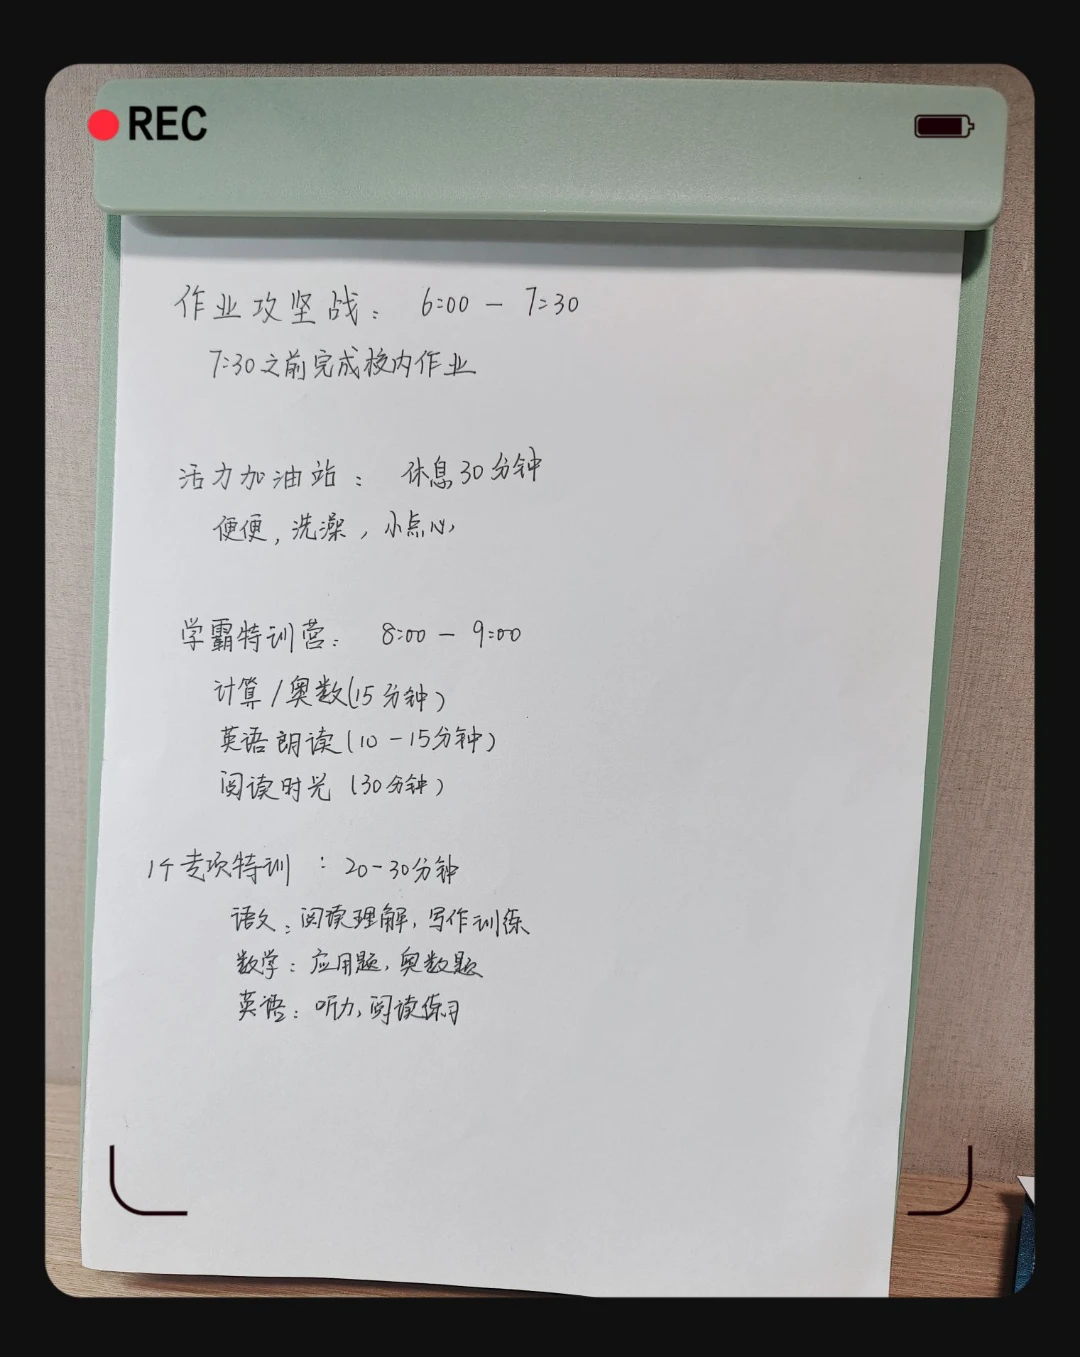 REC
作业攻坚战： 6:00 — 7:30
7:30之前完成校内作业
活力加油站： 休息30分钟
便便，洗澡，小点心
学霸特训营： 8:00 — 9:00
计算/奥数(15分钟)
英语朗读(10-15分钟)
阅读时光 (30分钟)
1个专项特训 ：20-30分钟
语文：阅读理解，写作训练
数学：应用题，奥数题
英语：听力，阅读练习